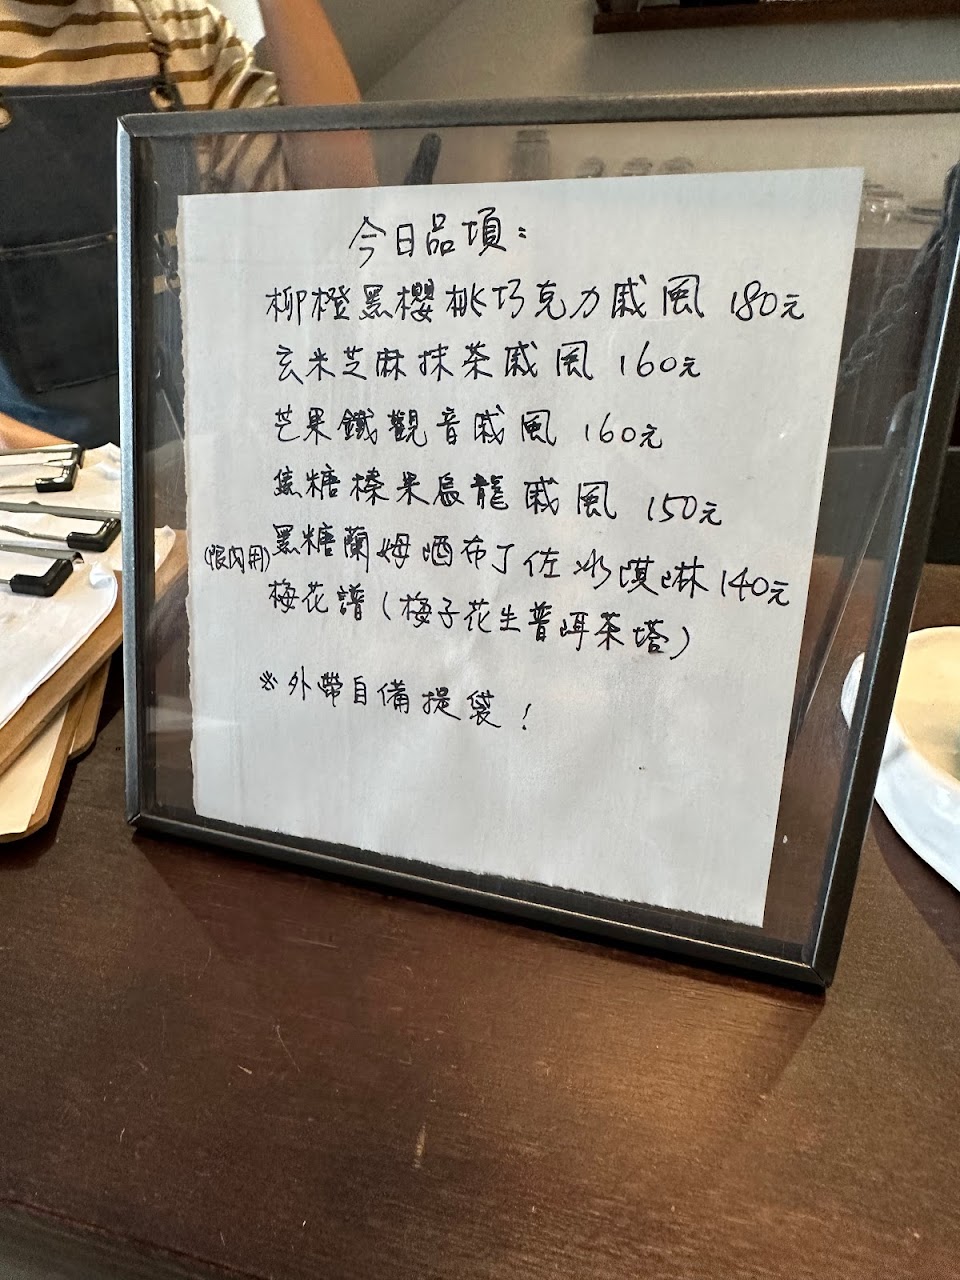 今日品項：
柳橙黑櫻桃巧克力戚風 180元
玄米芝麻抹茶戚風 160元
芒果鐵觀音戚風 160元
焦糖榛果烏龍戚風 150元
(限內用)黑糖蘭姆酒布丁佐冰淇淋 140元
梅花譜(梅子花生普洱茶塔)
※外帶自備提袋！